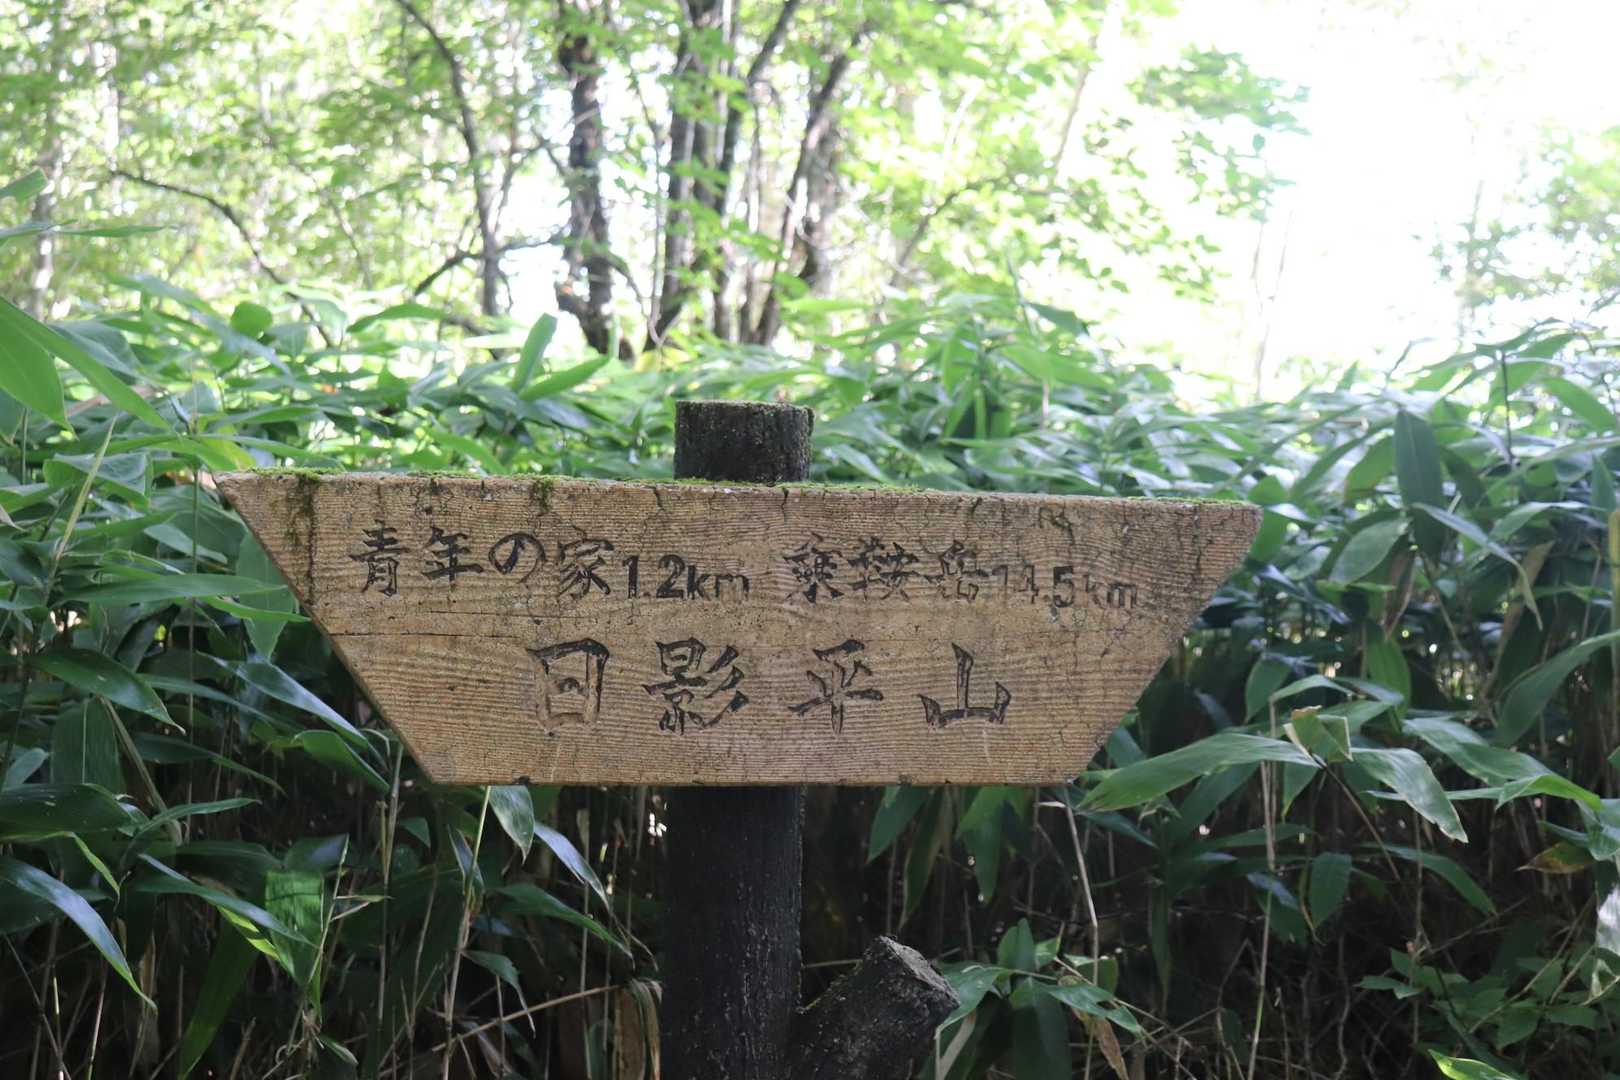 青年の家1.2km 乗鞍岳14.5km
日影平山